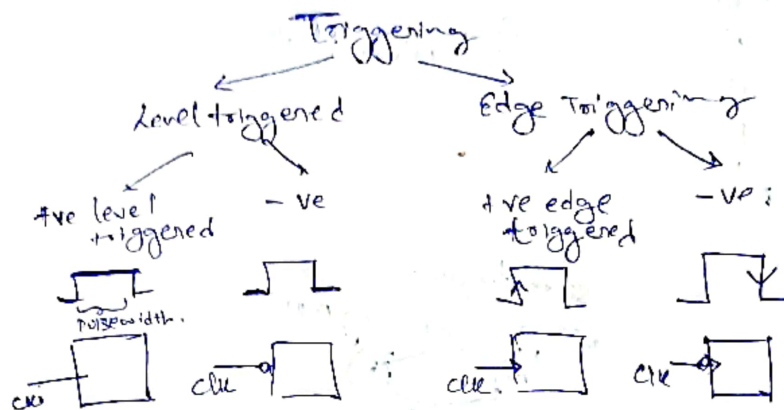 Triggering
Level triggered
Edge Triggering
+ve level triggered
- ve
+ve edge triggered
- ve :
Pulse width.
clk
clk
clk.
clk